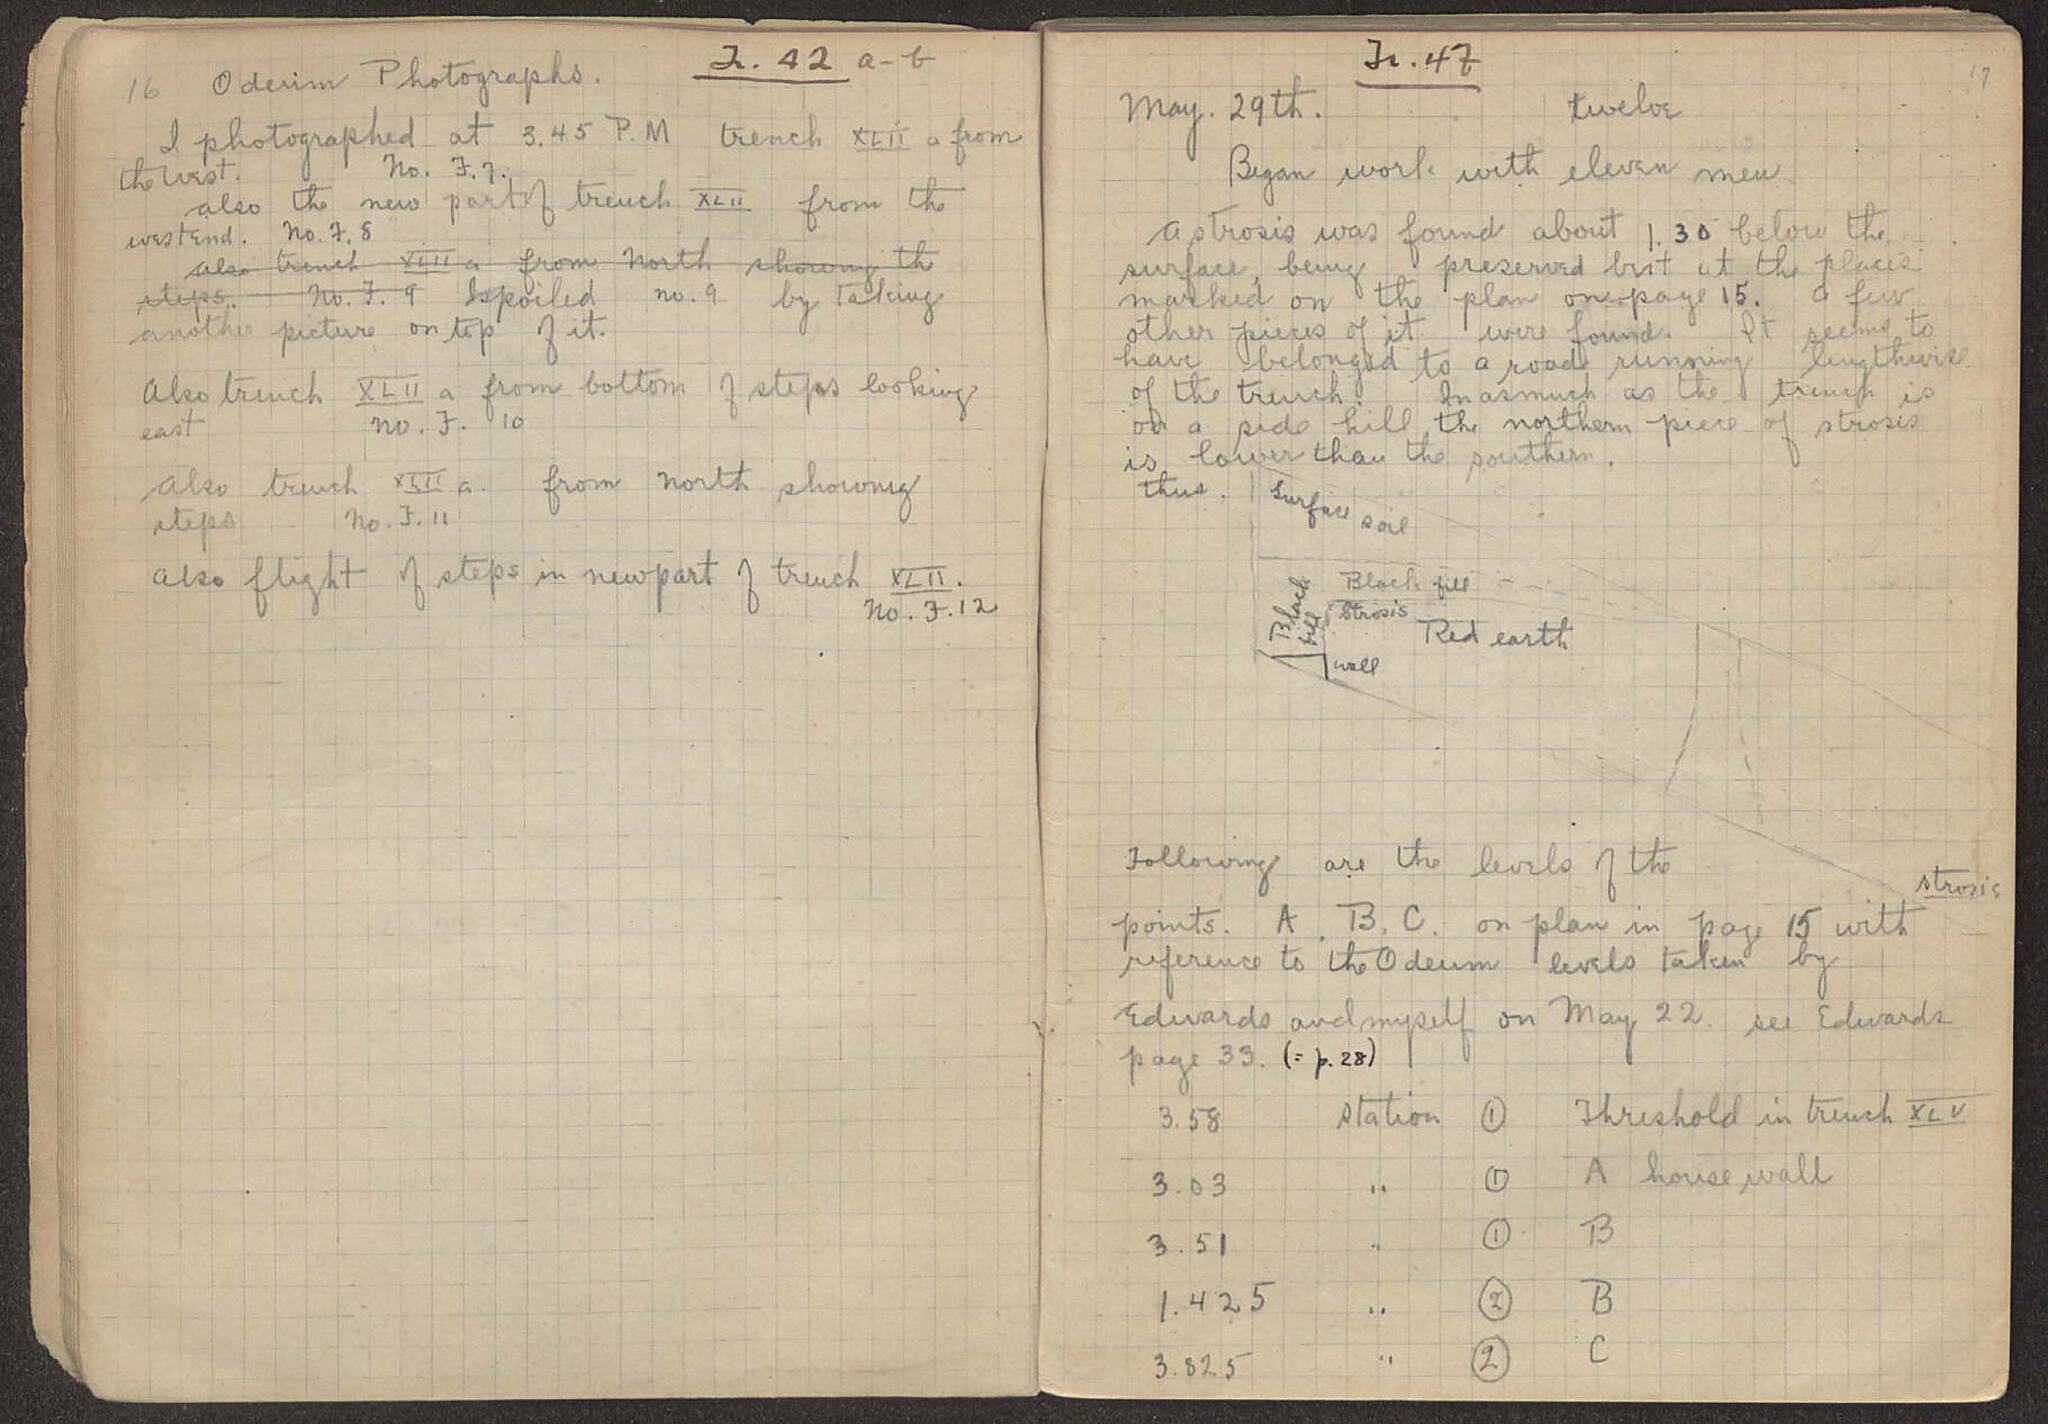 16 Odeum Photographs. Tr. 42 a-b
I photographed at 3.45 P.M trench XLII a from
the west. No. F.7.
also the new part of trench XLII from the
west end. No. F. 8
also trench XLII a from North showing the
steps. No. F. 9 I spoiled no. 9 by taking
another picture on top of it.
Also trench XLII a from bottom of steps looking
east No. F. 10
Also trench XLII a. from north showing
steps No. F. 11
Also flight of steps in new part of trench XLII.
No. F. 12
Tr. 47
17
May. 29th. twelve
Began work with eleven men.
A strosis was found about 1.30 below the
surface, being preserved best at the places
marked on the plan on page 15. A few
other pieces of it were found. It seems to
have belonged to a road running lengthwise
of the trench. Inasmuch as the trench is
on a side hill the northern piece of strosis
is lower than the southern.
thus.
Surface soil
Black fill
Black fill
Strosis
Red earth
wall
Following are the levels of the
strosis
points. A, B, C. on plan in page 15 with
reference to the Odeum levels taken by
Edwards and myself on May 22. see Edwards
page 33. (= p. 28)
3.58 Station ① Threshold in trench XLV
3.03 " ① A house wall
3.51 " ① B
1.425 " ② B
3.825 " ② C